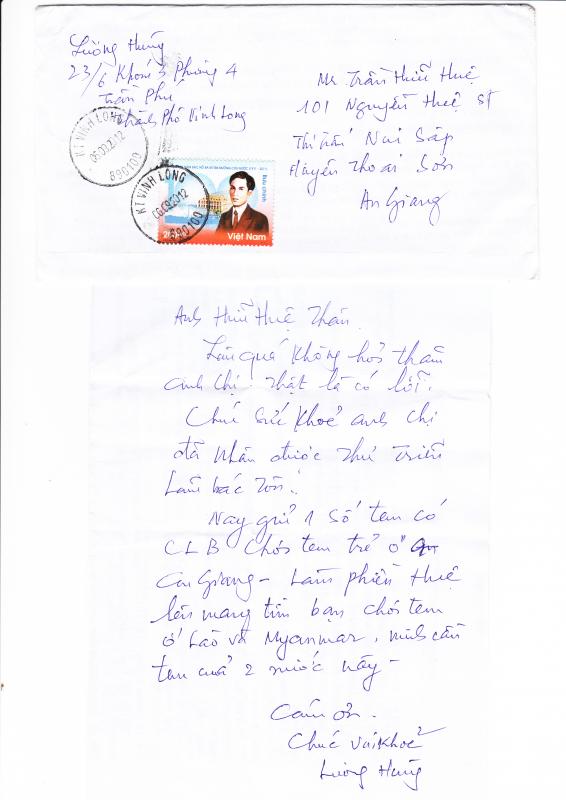 Lương Hưng
23/6 Khóm 3 Phường 4
Trần Phú
Thành Phố Vĩnh Long
KT VĨNH LONG
06.09.2012
890100
KT VĨNH LONG
06.09.2012
890100
Việt Nam
Bưu chính
Mr Trần Hữu Huệ
101 Nguyễn Huệ ST
Thị Trấn Núi Sập
Huyện Thoại Sơn
An Giang
Anh Hữu Huệ Thân
Lâu quá không hỏi thăm
anh chị. Thật là có lỗi.
Chúc sức khoẻ anh chị
đã nhận được thư Triển
Lãm bác Tôn.
Nay gửi 1 số tem có
CLB chơi tem trẻ ở
An Giang - Làm phiền Huệ
lên mạng tìm bạn chơi tem
ở Lào và Myanmar, mình cần
tem cuả 2 nước này -
Cám ơn.
Chúc vui khoẻ
Lương Hưng